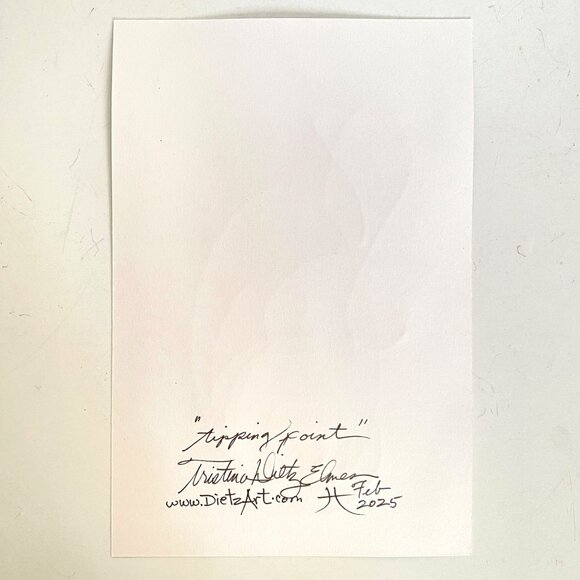 "tipping point"
Tristina Dietz Elmes
www.DietzArt.com Feb
2025